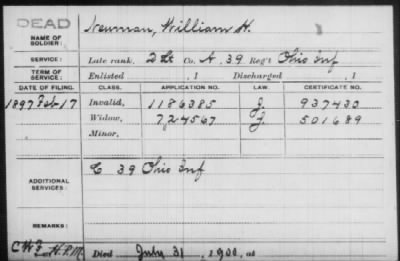 DEAD
NAME OF SOLDIER: Newman, William H.
SERVICE: Late rank, 2 Lt Co. A, 39 Reg't Ohio Inf
TERM OF SERVICE: Enlisted , 1 Discharged , 1
DATE OF FILING. CLASS. APPLICATION NO. LAW. CERTIFICATE NO.
1897 Feb 17 Invalid, 1186385 J. 937430
Widow, 724567 J. 501689
Minor,
ADDITIONAL SERVICES: C 39 Ohio Inf
REMARKS:
Died July 31, 1900, at